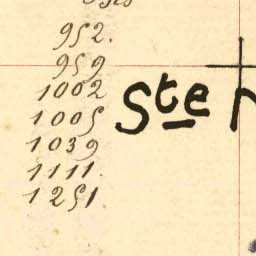 952.
959
1002
1005
1039
1111.
1251
Ste